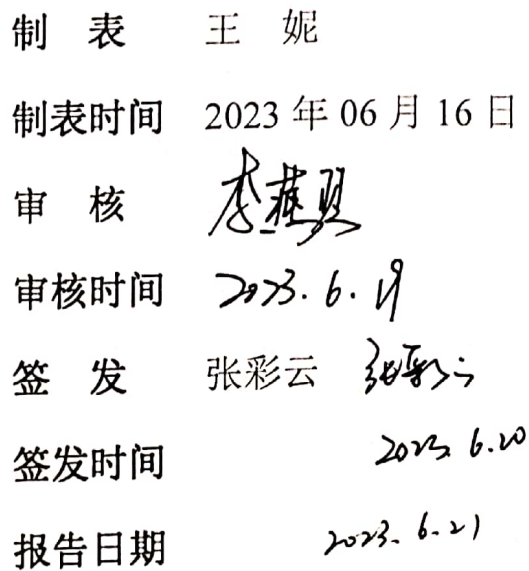 制 表 王 妮
制表时间 2023 年 06 月 16 日
审 核 李
审核时间 2023.6.19
签 发 张彩云 张彩云
签发时间 2023.6.20
报告日期 2023.6.21